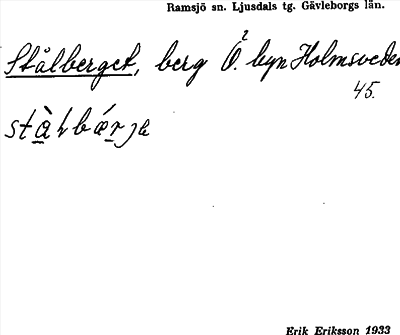 Ramsjö sn. Ljusdals tg. Gävleborgs län.
Stålberget, berg Ö. byn Holmsveden
45.
Erik Eriksson 1933